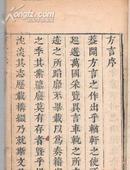 方言序
蓋聞方言之作出乎輶軒之使
巡遊萬國采覽異言車軌之所
迹之所蹈靡不畢載以爲奏籍
之季其業隳廢莫有存者暨乎
沈淡其志歷載構綴乃就斯文